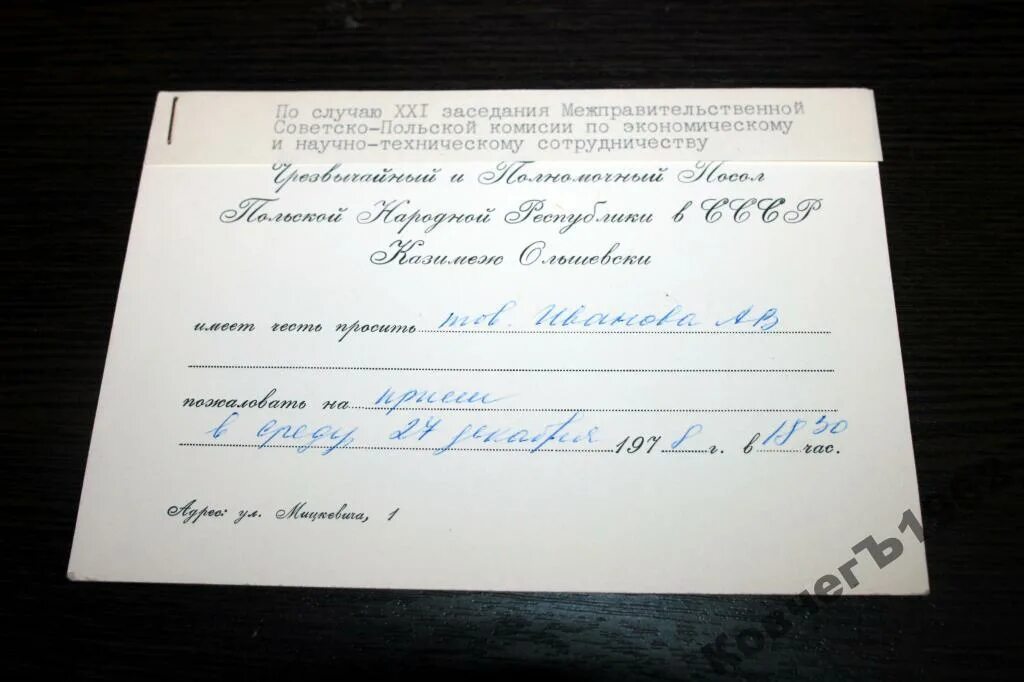 По случаю XXI заседания Межправительственной
Советско-Польской комисии по экономическому
и научно-техническому сотрудничеству
Чрезвычайный и Полномочный Посол
Польской Народной Республики в СССР
Казимеж Ольшевски
имеет честь просить тов. Иванова АВ
пожаловать на прием
в среду 27 декабря 1978 г. в 18 30 час.
Адрес: ул. Мицкевича, 1
КовчегЪ1